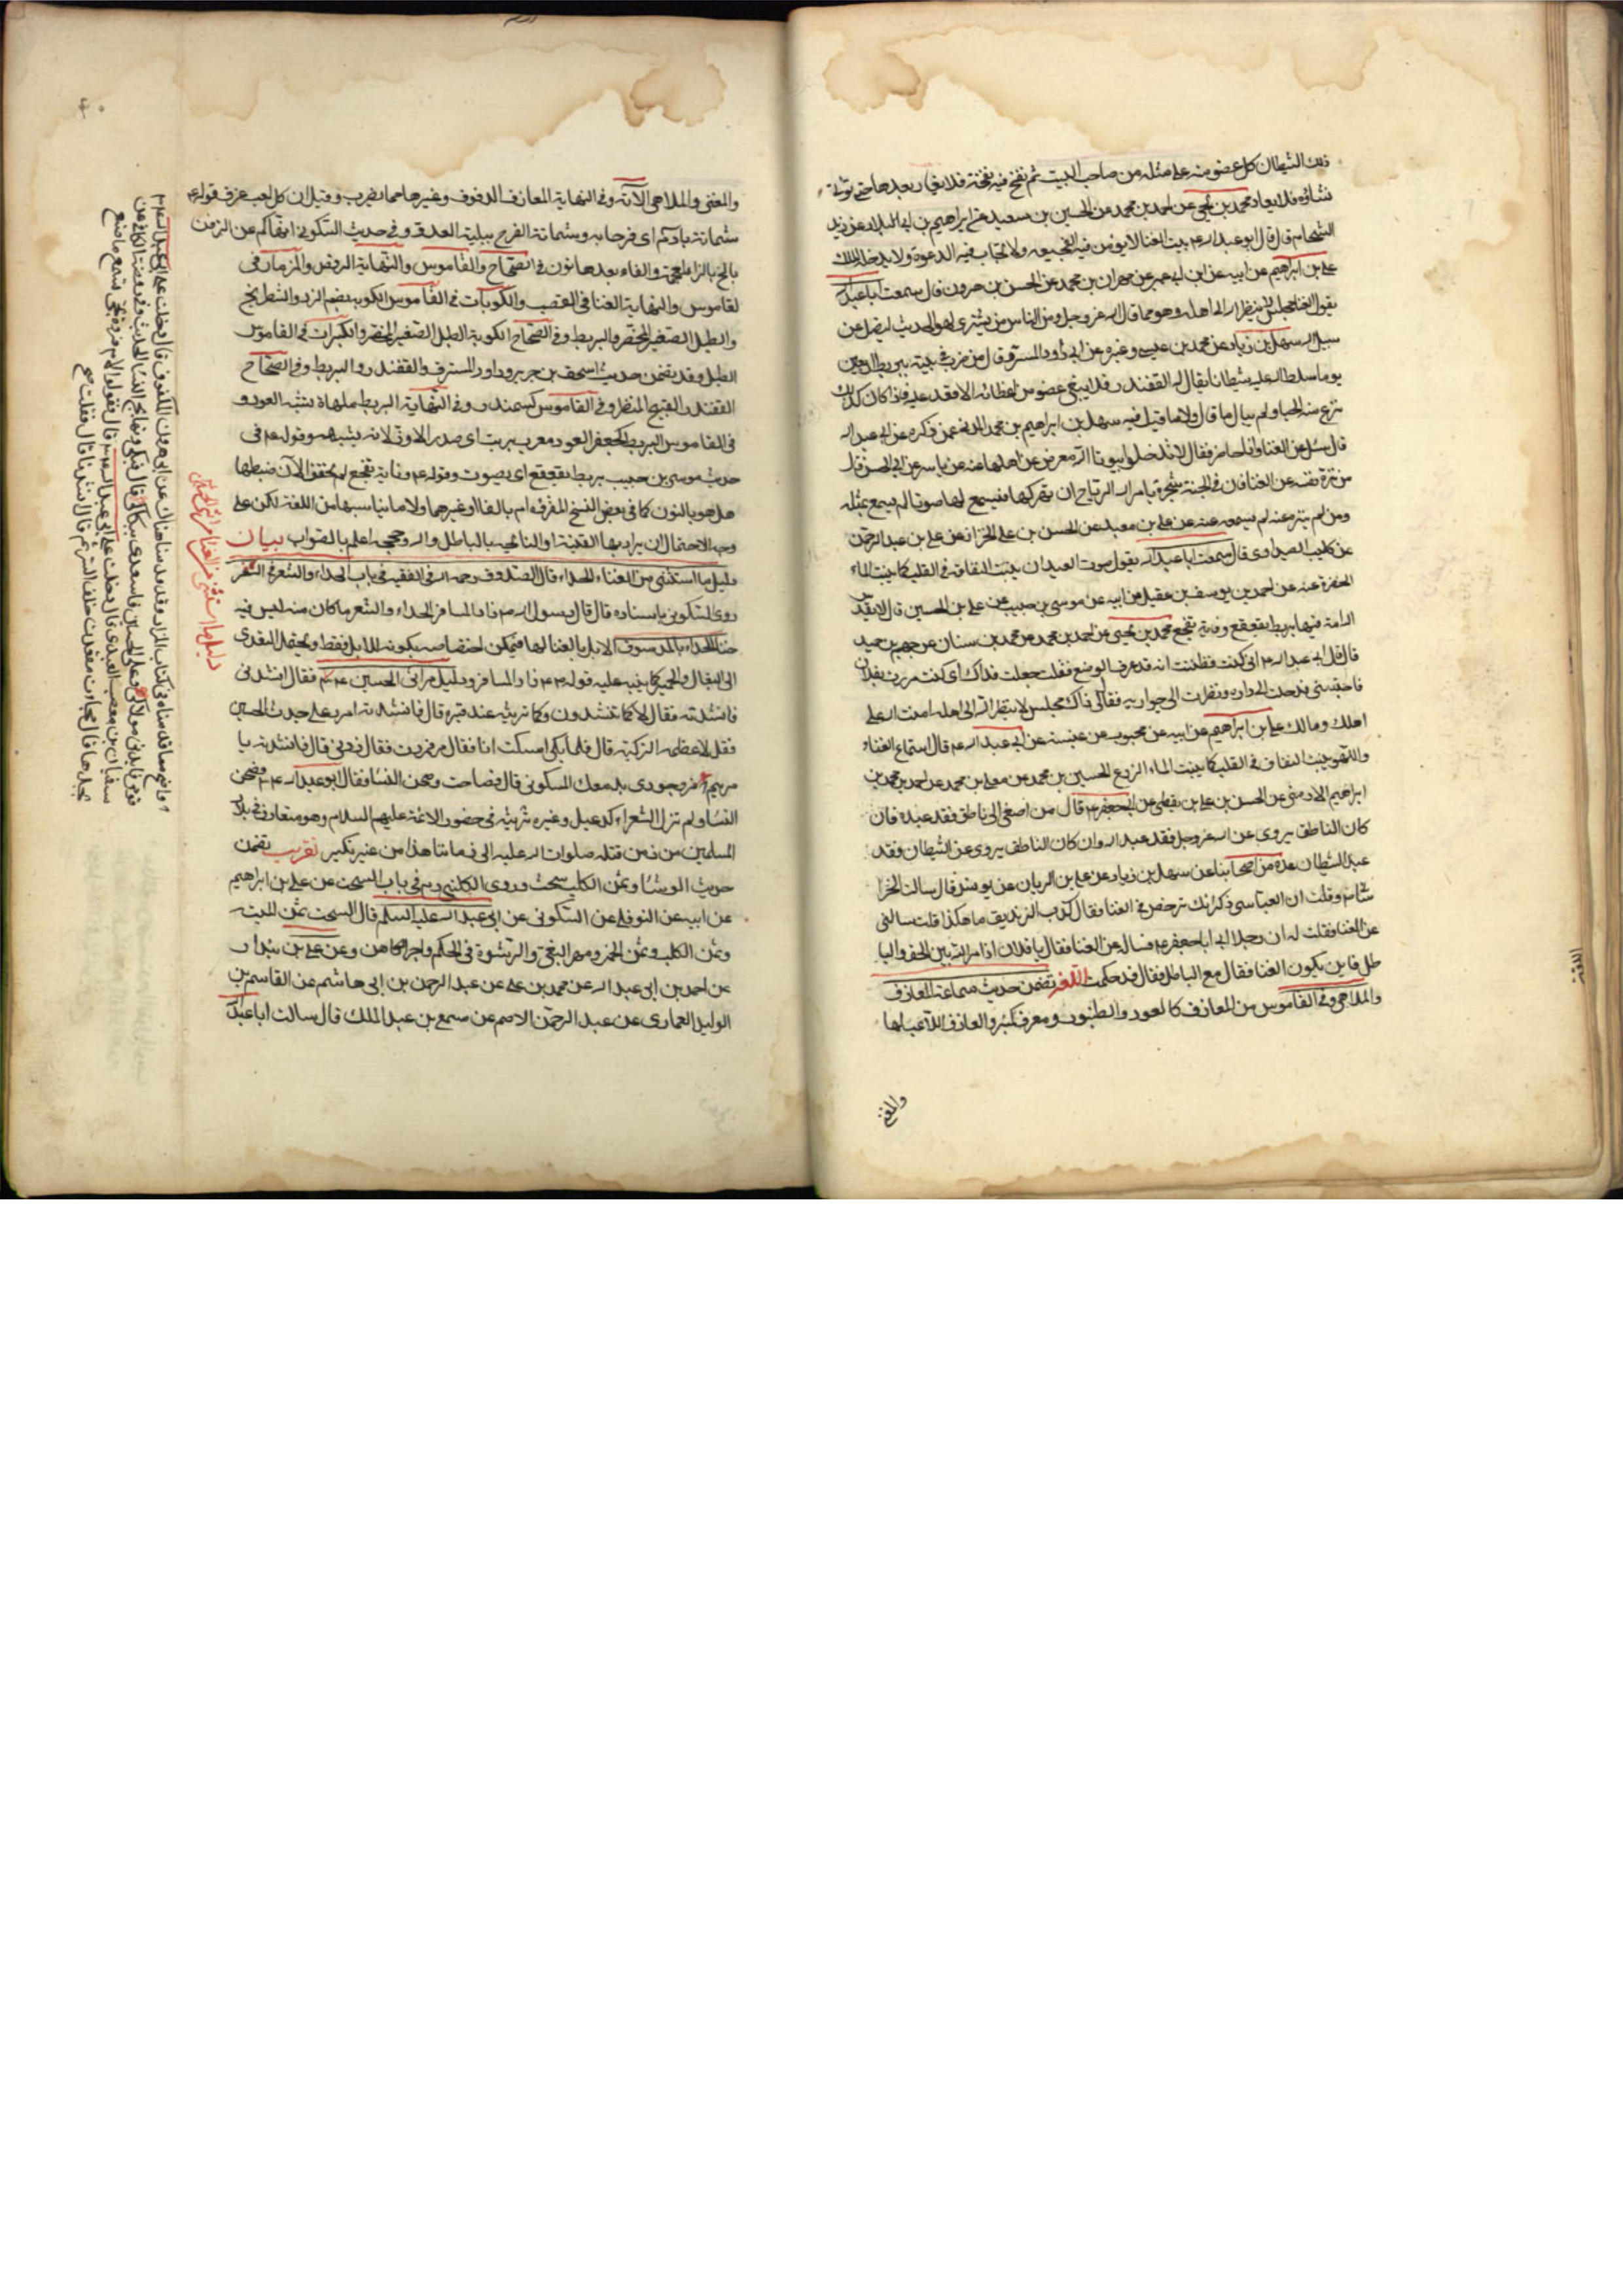 ذلك الشيطان كل عضو منه على مثله من صاحب البيت ثم نفخ فيه نفخة فلا يغار بعدها حتى تؤتى
نساؤه فلا يغار محمد بن يحيى عن احمد بن محمد عن الحسين بن سعيد عن ابراهيم بن ابى البلاد عن زيد
الشحام قال قال ابو عبد الله ع بيت الغنا لا يؤمن فيه الفجيعه ولا تجاب فيه الدعوة ولا يدخله الملك
على بن ابراهيم عن ابيه عن ابن ابى عمير عن مهران بن محمد عن الحسن بن هرون قال سمعت ابا عبد الله
يقول الغنا مجلس لا ينظر الله الى اهله وهو مما قال الله عز وجل ومن الناس من يشترى لهو الحديث ليضل عن
سبيل الله سهل بن زياد عن محمد بن عيسى وغيره عن ابى داود المسترق قال من ضرب فى بيته بربط اربعين
يوما سلط الله عليه شيطانا يقال له القفندر فلا يبقى عضو من اعضائه الا قعد عليه فاذا كان كذلك
نزع منه الحيا ولم يبال ما قال ولا ما قيل فيه سهل بن ابراهيم بن محمد المدينى عمن ذكره عن ابى عبد الله
قال سئل عن الغنا وانا حاضر فقال لا تدخلوا بيوتا الله معرض عن اهلها عنه عن ياسر عن ابى الحسن قال
من نزه نفسه عن الغنا فان فى الجنة شجرة يامر الله الرياح ان تحركها فيسمع لها صوتا لم يسمع بمثله
ومن لم يتنزه عنه لم يسمعه عنه عن على بن معبد عن الحسن بن على الخزاز عن على بن عبد الرحمن
عن كليب الصيداوى قال سمعت ابا عبد الله يقول ضرب العيدان ينبت النفاق فى القلب كما ينبت الماء
الخضرة عنه عن احمد بن يوسف بن عقيل عن ابيه عن موسى بن حبيب عن على بن الحسين قال لا يقدس
الله امة فيها بربط يقعقع وفاية تفجع محمد بن يحيى عن احمد بن محمد عن محمد بن سنان عن جهم بن حميد
قال قال لى ابو عبد الله ع انى كنت فظننت انه قد عرف الموضع فقلت جعلت فداك انى كنت مررت بفلان
فاحتبسنى فدخلت الى داره ونظرت الى جواريه فقال لى ذاك مجلس لا ينظر الله الى اهله امنت الله على
اهلك ومالك على بن ابراهيم عن ابيه عن محبوب عن عنبسة عن ابى عبد الله ع قال استماع الغناء
واللهو ينبت النفاق فى القلب كما ينبت الماء الزرع الحسين بن محمد عن معلى بن محمد عن احمد بن محمد بن
ابراهيم الارمنى عن الحسن بن على بن يقطين عن ابى جعفر ع قال من اصغى الى ناطق فقد عبده فان
كان الناطق يروى عن الله عز وجل فقد عبد الله وان كان الناطق يروى عن الشيطان فقد
عبد الشيطان عدة من اصحابنا عن سهل بن زياد عن على بن الريان عن يونس قال سالت الخرا
سانى وقلت ان العباسى ذكر انك ترخص فى الغنا فقال كذب الزنديق ما هكذا قلت سالنى
عن الغنا فقلت له ان رجلا اتى ابا جعفر ع فساله عن الغنا فقال يا فلان اذا ميز الله بين الحق والبا
طل فاين يكون الغنا فقال مع الباطل فقال قد حكمت اللغة تضمن حديث سماعة المعازف
والملاهى وفى القاموس من المعازف كالعود والطنبور ومعزف كمنبر والعازف اللاعب بها
والمغنى
والمغنى والملاهى الآتة وفى النهاية المعازف الدفوف وغيرها مما يضرب وقيل ان كل لعب عزف قوله ع
شماتة بادم اى فرحا به وشماتة الفرح ببلية العدو وفى حديث السكونى انهاكم عن الزفن
بالخ بالزاء المعجمة والفاء بعدها نون فى الصحاح والقاموس والنهاية الرقص والمزمار فى
لقاموس والنهاية الغنا فى القصب والكوبات فى القاموس الكوبة بضم النرد والشطرنج
والطبل الصغير المخصر والبربط وفى الصحاح الكوبة الطبل الصغير المخصر والكبرات فى القاموس
الطبل وقد تضمن حديث اسحق بن جرير وداود المسترق القفندر والبربط وفى الصحاح
القفندر القبيح المنظر وفى القاموس كسمندر وفى النهاية البربط ملهاة تشبه العود و
فى القاموس البربط كجعفر العود معرب بربت اى صدر الاوز لانه يشبهه وقوله ع فى
حديث موسى بن حبيب بربط يقعقع اى يصوت وقوله ع وفاية تفجع لم يحقق الآن ضبطها
هل هو بالنون كما فى بعض النسخ المقرؤه ام بالفا او غيرهما ولا ما يناسبها من اللغة لكن على
وجه الاحتمال ان يراد بها القينة او النائحة بالباطل والله وحججه اعلم بالصواب بيان
دليل ما استثنى من الغناء للحداء قال الصدوق رحمه الله فى الفقيه فى باب الحداء والشعر فى السفر
روى السكونى باسناده قال قال رسول الله ص زاد المسافر الحداء والشعر ما كان منه ليس فيه
خنا الحداء بالمد سوق الابل بالغنا لها فيمكن اختصاصه بكونه للابل فقط ويحتمل التعدى
الى البغال والحمير كما ينبه عليه قوله ص زاد المسافر ودليل مراثى الحسين ع فقال انشدنى
فانشدته فقال لا كما تنشدون وكما ترثيه عند قبره قال فانشدته امرر على جدث الحسين
فقل لاعظمه الزكية قال فلما بكى امسكت انا فقال مر فمررت فقال زدنى قال فانشدته يا
مريم قومى فاندبى مولاك
النسا ولم تزل الشعراء كدعبل وغيره ترثيه فى حضور الائمة عليهم السلام وهو متعارف فى بلاد
المسلمين من زمن قتله صلوات الله عليه الى زماننا هذا من غير نكير تقريب تضمن
حديث الوشا وثمن الكلب سحت وروى الكلينى ره فى باب السحت عن على بن ابراهيم
عن ابيه عن النوفلى عن السكونى عن ابى عبد الله عليه السلم قال السحت ثمن الميتة
وثمن الكلب وثمن الخمر ومهر البغى والرشوة فى الحكم واجر الكاهن وعن على بن بندار
عن احمد بن ابى عبد الله عن محمد بن على عن عبد الرحمن بن ابى هاشم عن القاسم بن
الوليد العمارى عن عبد الرحمن الاصم عن مسمع بن عبد الملك قال سالت ابا عبد الله
دليل ما استثنى من الغنا مراثى الحسين